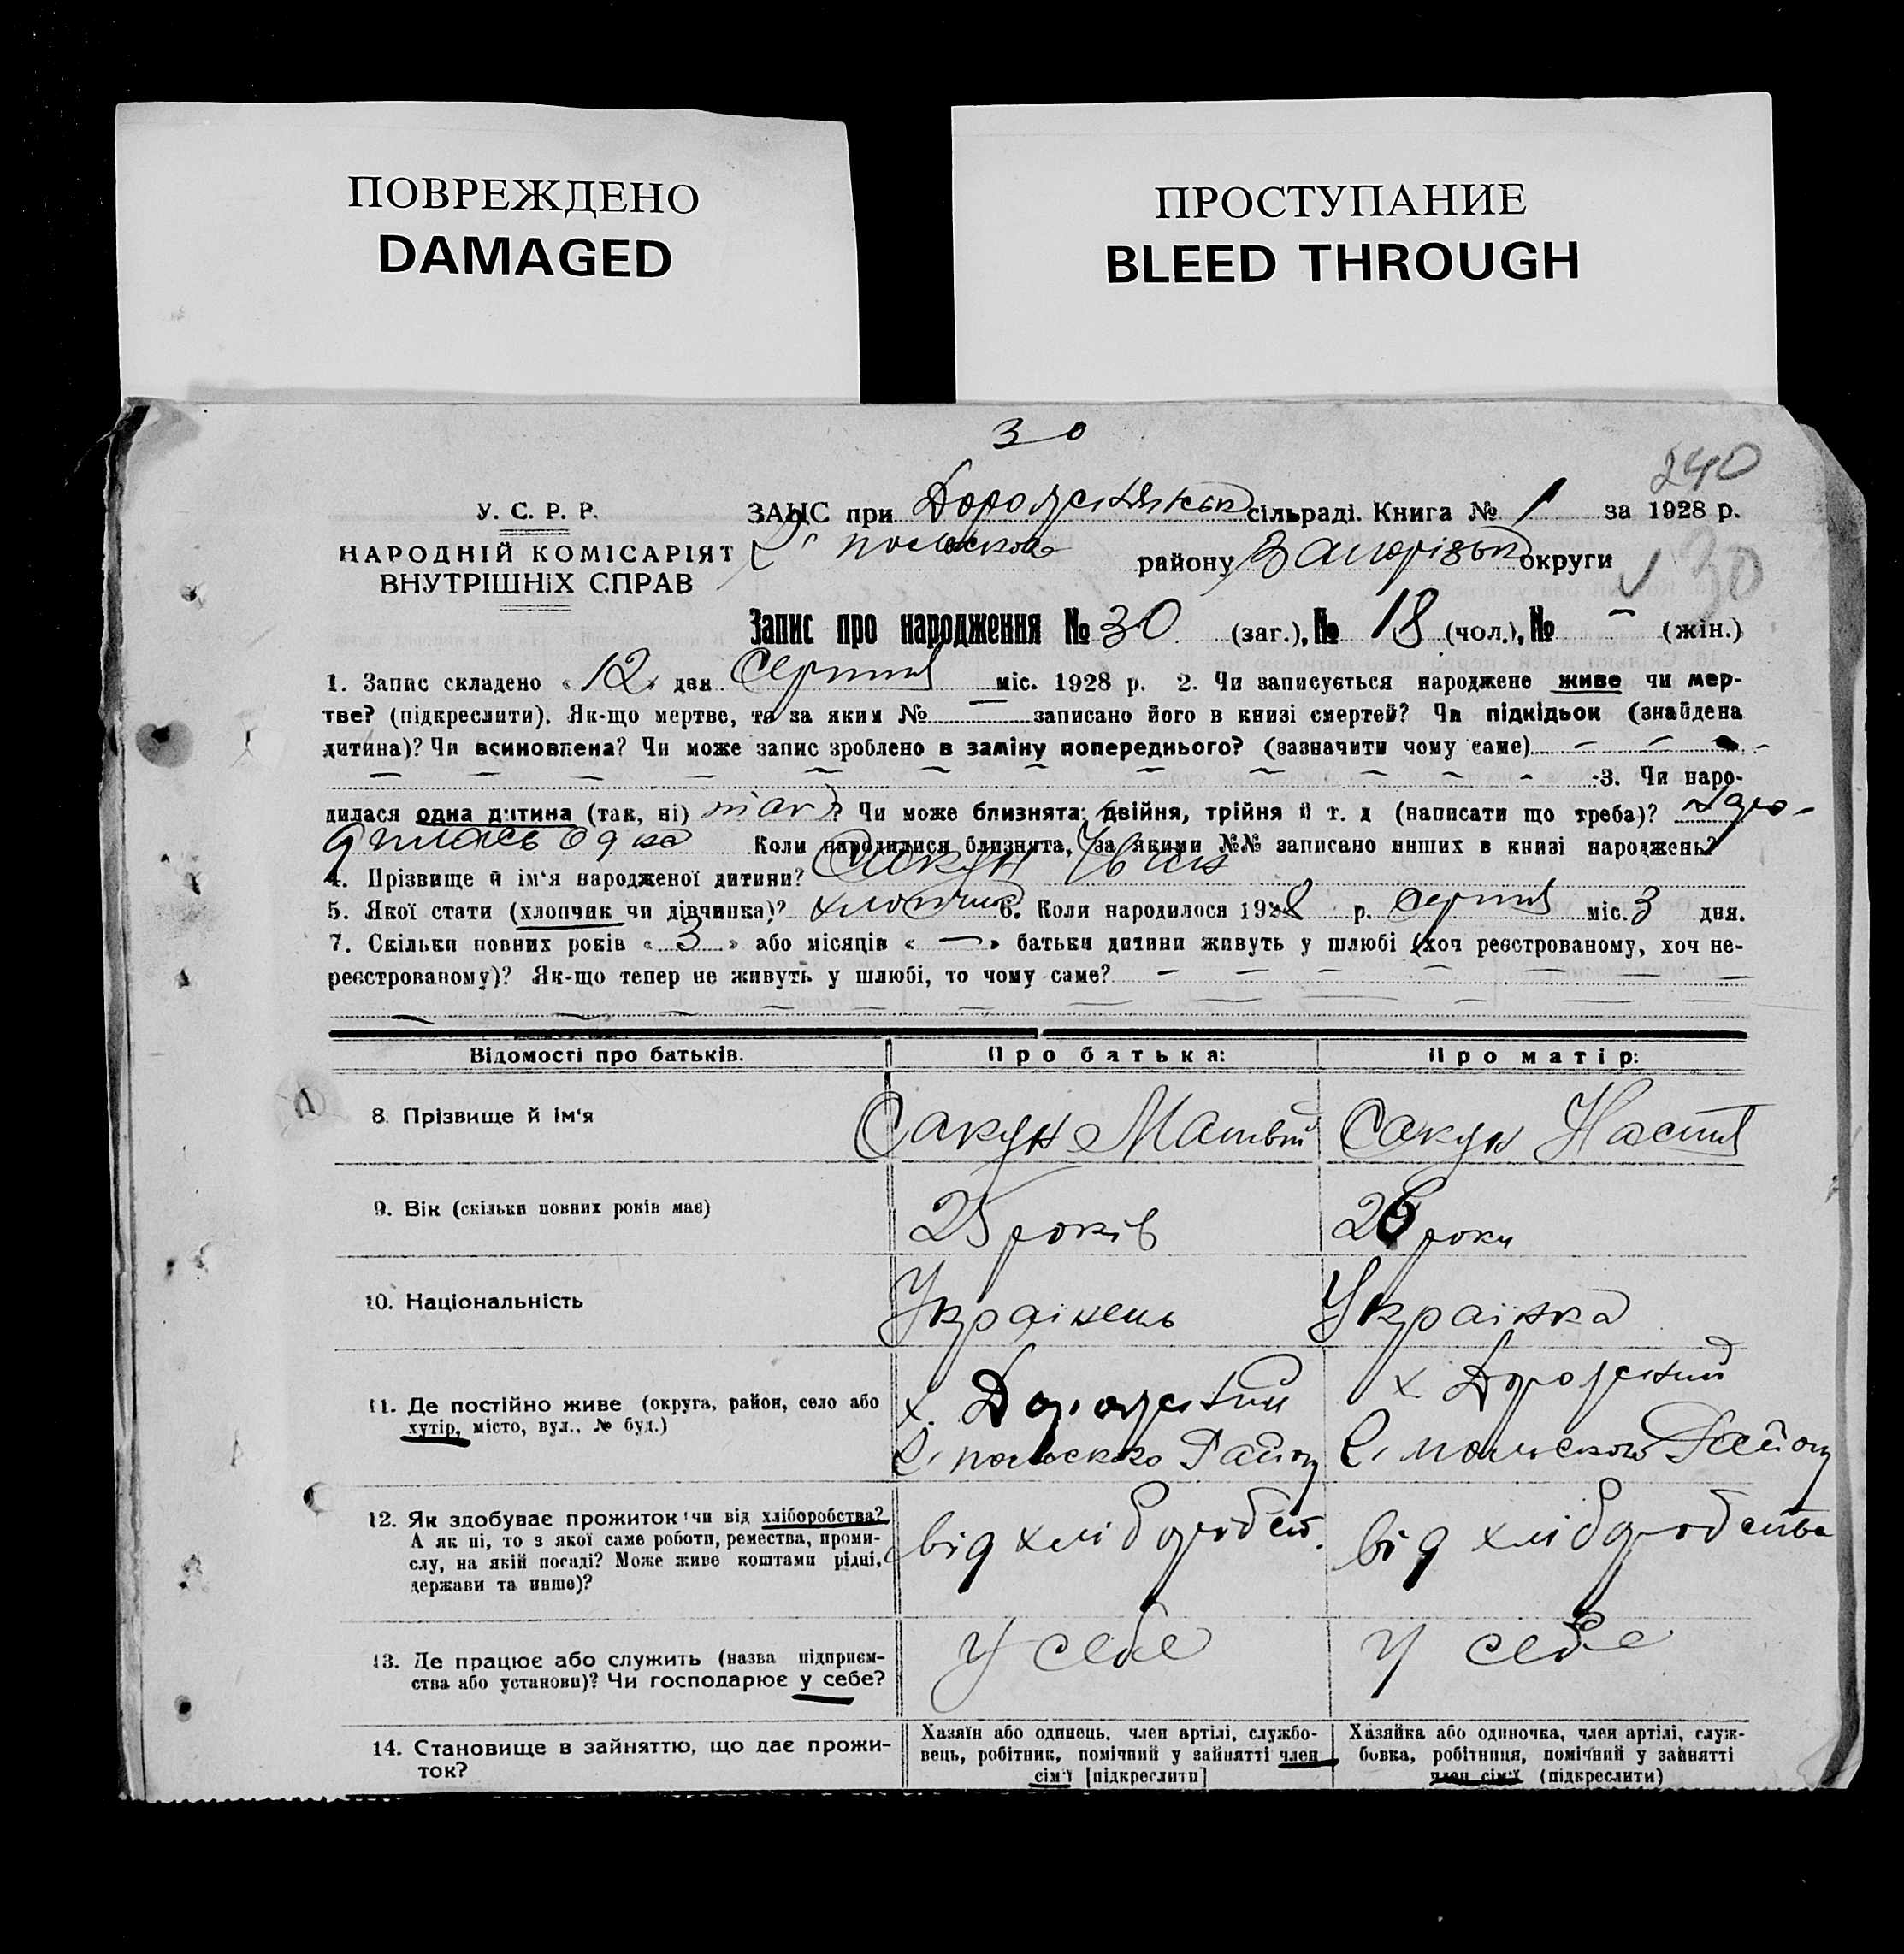 ПОВРЕЖДЕНО
DAMAGED
ПРОСТУПАНИЕ
BLEED THROUGH
30
240
У. С. Р. Р.
НАРОДНІЙ КОМІСАРІЯТ
ВНУТРІШНІХ СПРАВ
ЗАЦС при сільраді. Книга № 1 за 1928 р.
району Запорізьк округи
30
Запис про народження № 30 (заг.), № 18 (чол.), № – (жін.)
1. Запис складено « 12 » дня Серпня міс. 1928 р. 2. Чи записується народжене живе чи мер-
тве? (підкреслити). Як-що мертве, то за яким № — записано його в книзі смертей? Чи підкідьок (знайдена
дитина)? Чи всиновлена? Чи може запис зроблено в заміну попереднього? (зазначити чому саме) – – –
– – – – – – – – – – – – 3. Чи наро-
дилася одна дитина (так, ні) так? Чи може близнята: двійня, трійня й т. д (написати що треба)? Наро-
дилась одна Коли народилися близнята, за якими №№ записано инших в книзі народжень?
4. Прізвище й ім'я народженої дитини? Сакун Іван
5. Якої стати (хлопчик чи дівчинка)? хлопчик 6. Коли народилося 1928 р. Серпня міс. 3 дня.
7. Скільки повних років « 3 » або місяців « — » батьки дитини живуть у шлюбі (хоч реєстрованому, хоч не-
реєстрованому)? Як-що тепер не живуть у шлюбі, то чому саме? – – – – – – –
Відомості про батьків. Про батька: Про матір:
8. Прізвище й ім'я Сакун Матвій Сакун Настя
9. Вік (скільки повних років має) 25 років 26 роки
10. Національність Українець Українка
11. Де постійно живе (округа, район, село або
хутір, місто, вул., № буд.)
х.
Район
х
Район
12. Як здобуває прожиток чи від хліборобства?
А як ні, то з якої саме роботи, ремества, проми-
слу, на якій посаді? Може живе коштами рідні,
держави та инше)?
від хліборобст.
від хліборобства
13. Де працює або служить (назва підприєм-
ства або установи)? Чи господарює у себе?
у себе
у себе
14. Становище в зайняттю, що дає прожи-
ток?
Хазяїн або одинець, член артілі, службо-
вець, робітник, помічний у зайнятті член
сім'ї [підкреслити]
Хазяйка або одиночка, член артілі, служ-
бовка, робітниця, помічний у зайнятті
член сім'ї (підкреслити)